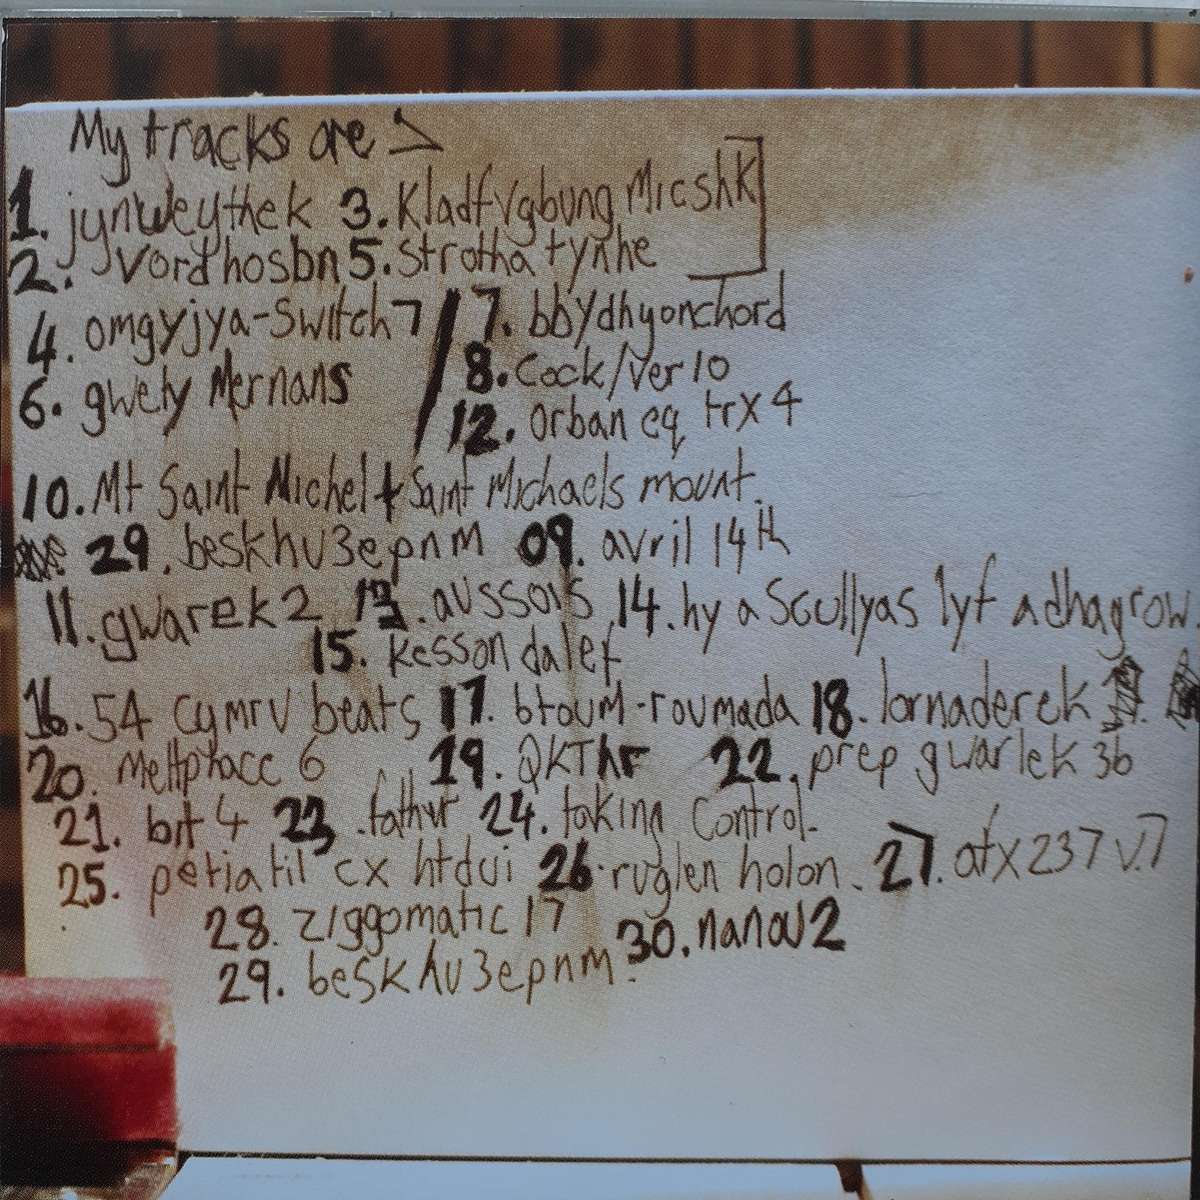 My tracks are >
1. jynweythek 3. Kladfvgbung Micshk
2. vordhosbn 5. Strotha tynhe
4. omgyjya-Switch 7 / 7. bbydhyonchord
8. Cock/ver 10
6. gwety Mernans
12. orban eq trx 4
10. Mt Saint Michel + Saint Michaels mount.
29. beskhu3epnm 09. avril 14th
11. gwarek 2 13. aussois 14. hy a Scullyas lyf adhagrow.
15. kesson dalef
16. 54 cymru beats 17. btoum-roumada 18. lornaderek
20. Meltphace 6 19. QKThr 22. prep gwarlek 3b
21. bit 4 23. fathur 24. taking Control.
25. petiatil cx htdui 26. ruglen holon. 27. afx 237 v.7
28. ziggomatic 17
30. nanou 2
29. beskhu3epnm.